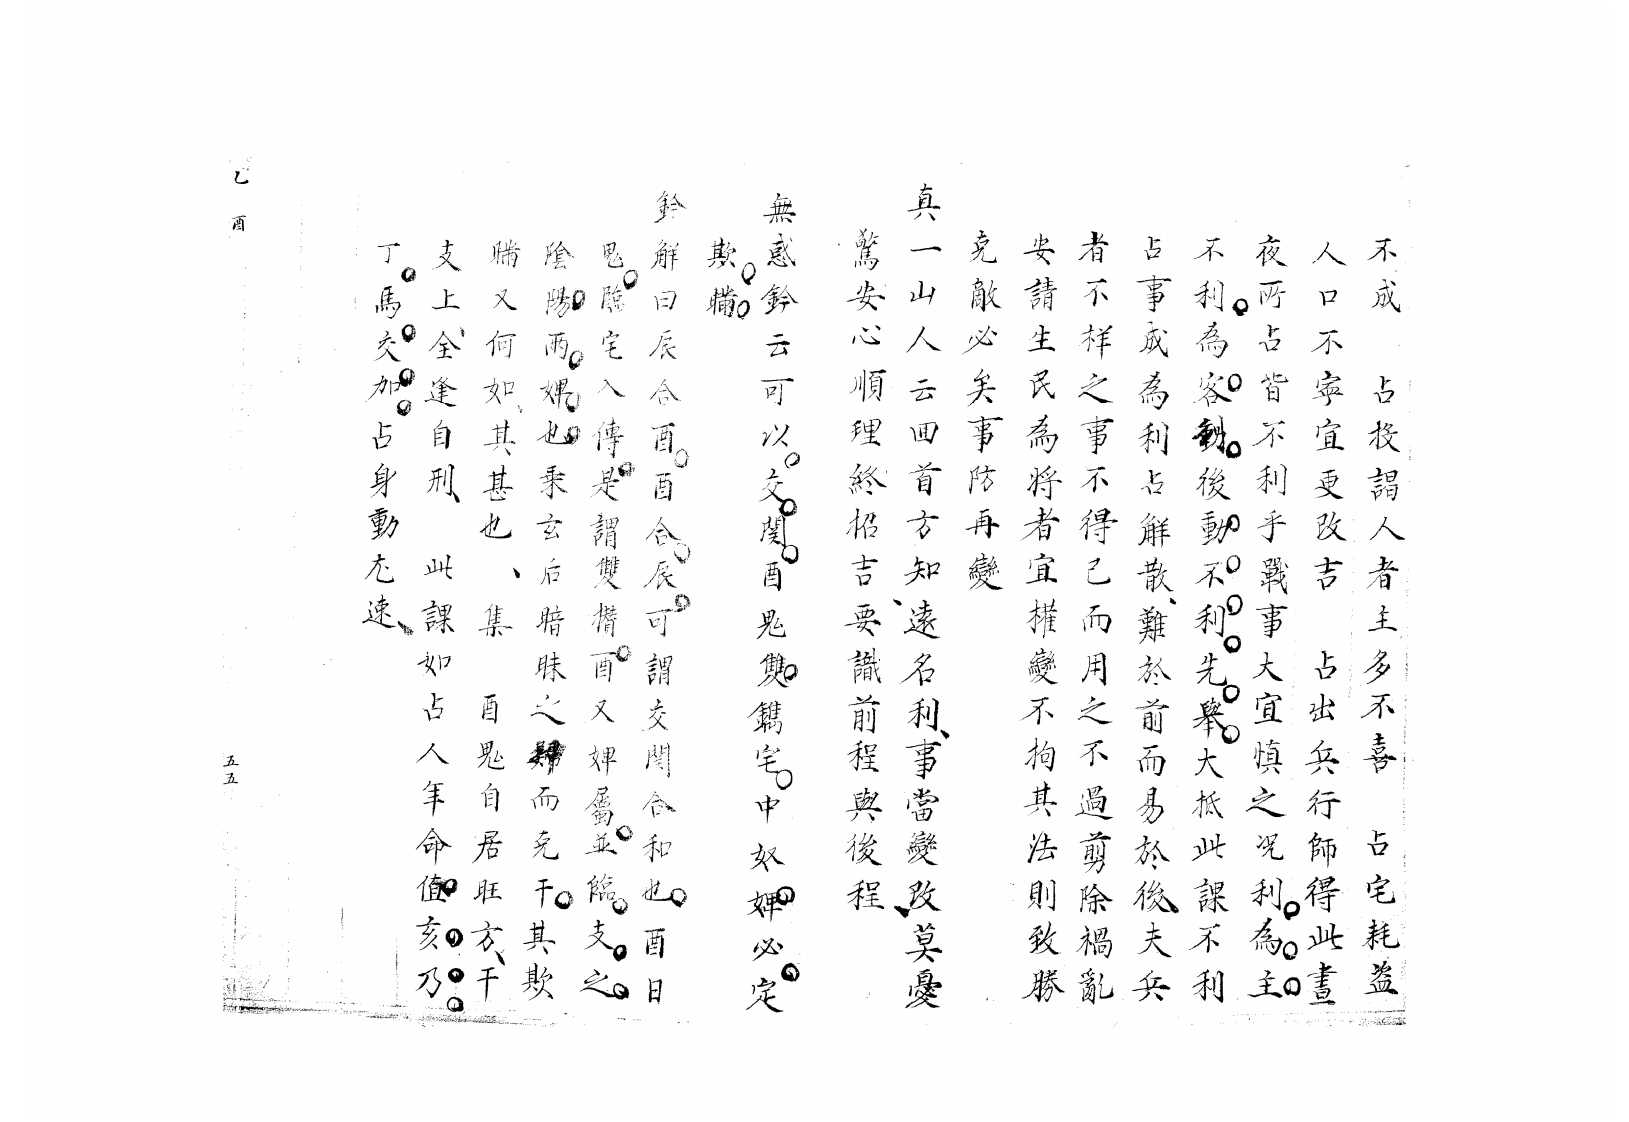 不成　占投謁人者主多不喜　占宅耗盜
人口不寧宜更改吉　占出兵行師得此晝
夜所占皆不利乎戰事大宜慎之況利為主
不利為客動後動不利先舉大抵此課不利
占事成為利占解散難於前而易於後夫兵
者不祥之事不得已而用之不過剪除禍亂
安請生民為將者宜權變不拘其法則致勝
克敵必矣事防再變
真一山人云回首方知遠名利事當變改莫憂
驚安心順理終招吉要識前程與後程
無惑鈐云可以交関酉鬼雙鐫宅中奴婢必定
欺瞞
鈐解曰辰合酉酉合辰可謂交関合和也酉日
鬼臨宅入傳是謂雙　酉又婢屬並臨支之
陰陽兩婢也乘玄后暗昧之　而克干其欺
瞞又何如其甚也、集　酉鬼自居旺方干
支上全逢自刑、此課如占人年命值亥乃
丁馬交加占身動尤速
乙酉
五五